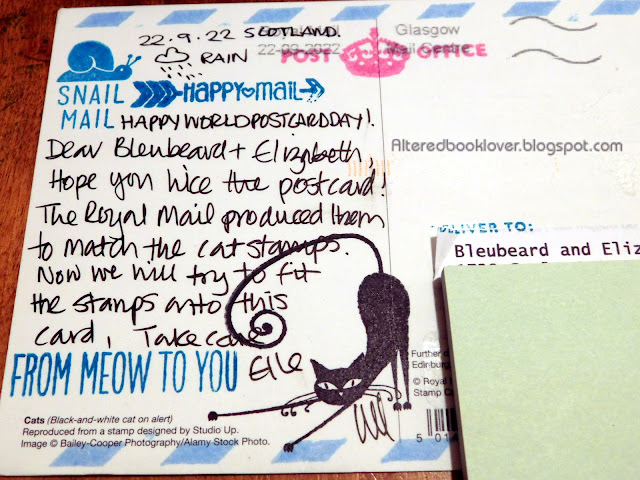 22.9.22 SCOTLAND.
RAIN
22-09-2022
Glasgow
Mail Centre
POST OFFICE
SNAIL MAIL
HAPPY MAIL
HAPPY WORLD POSTCARD DAY!
Alteredbooklover.blogspot.com
Dear Bleubeard + Elizabeth
Hope you like the postcard!
The Royal Mail produced them
to match the cat stamps.
Now we will try to fit
the stamps onto this
card, Take care
Elle
FROM MEOW TO YOU
DELIVER TO:
Bleubeard and Eliz
Cats (Black-and-white cat on alert)
Reproduced from a stamp designed by Studio Up.
Image © Bailey-Cooper Photography/Alamy Stock Photo.
Further d
Edinburg
© Royal
Stamp Ca
5 01